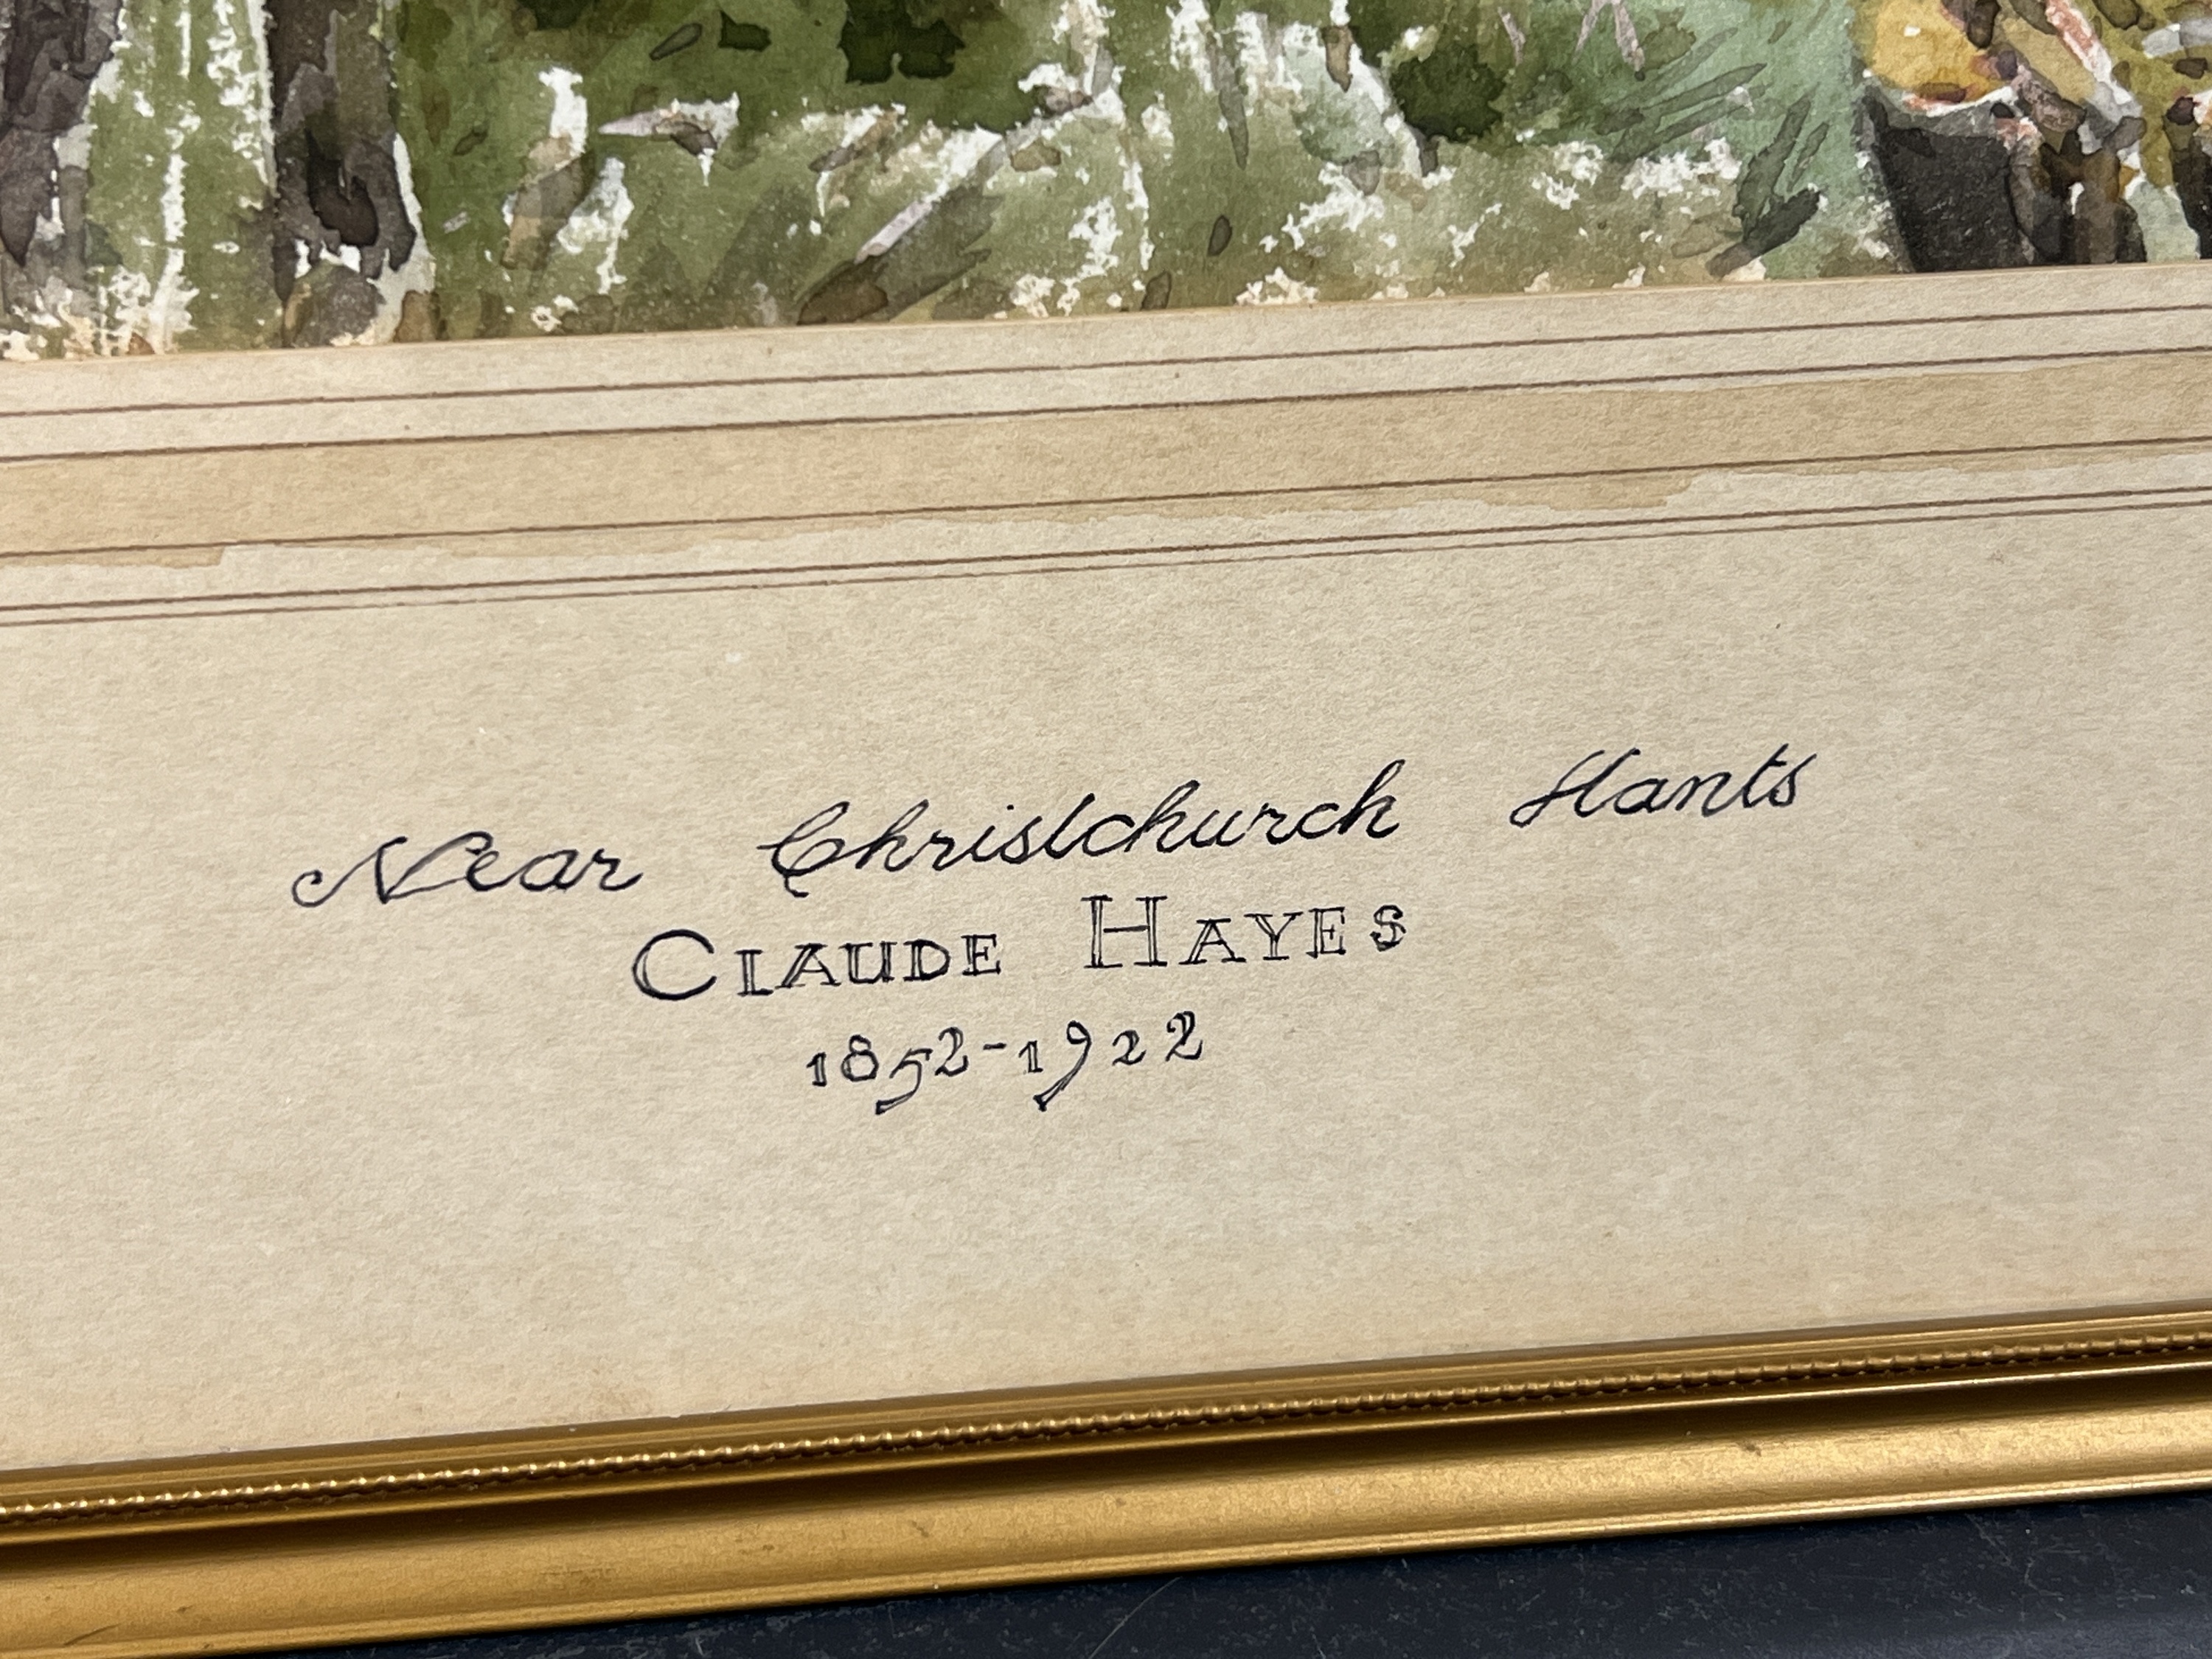 Near Christchurch Hants
CLAUDE HAYES
1852-1922